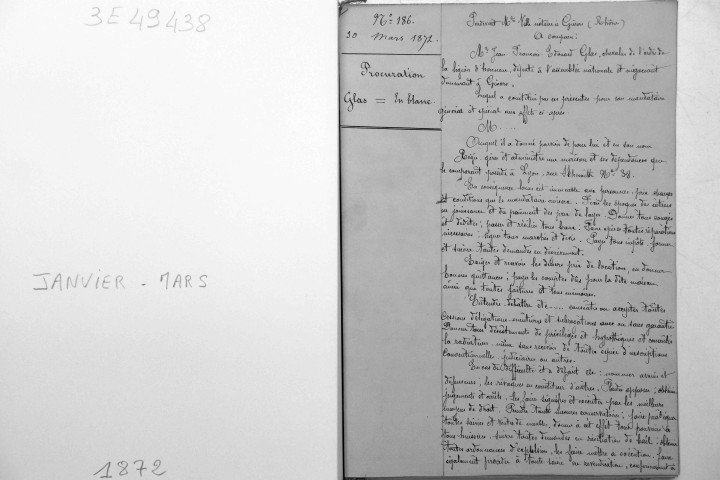 3E 49438
JANVIER - MARS
1872
No 186.
30 Mars 1872.
Procuration
Glas = En blanc
Pardevant Me notaire à Givors (Rhône)
A comparu:
Mr Jean François Edouard Glas, chevalier de l'ordre de
la légion d'honneur, député à l'assemblée nationale et négociant
demeurant à Givors.
Lequel a constitué par ces présentes pour son mandataire
général et spécial aux effets ci après
M. ....
Auquel il a donné pouvoir de pour lui et en son nom
Régir, gérer et administrer une maison et ses dépendances que
le comparant possède à Lyon, rue No 38.
En conséquence louer cet immeuble aux personnes, prix, charges
et conditions que le mandataire avisera. Fixer les époques des entrées
en jouissance et du paiement des prix de loyer. Donner tous congés
et dédites; passer et résilier tous baux. Faire opérer toutes réparations
nécessaires; signer tous marchés et devis. Payer tous impôts, former
et suivre toutes demandes en dégrèvement.
Exiger et recevoir les divers prix de location, en donner
bonnes quittances; payer les comptes dûs pour la dite maison
ainsi que toutes factures et tous mémoires.
Entendre, débattre etc.... consentir ou accepter toutes
cessions délégations, mentions et subrogations avec ou sans garantie
Donner tous désistements de privilèges et hypothèques et consentir
la radiation même sans recevoir de toutes espèces d'inscriptions
conventionnelles, judiciaires ou autres.
En cas de difficulté et à défaut etc: nommer avoués et
défenseurs; les révoquer en constituer d'autres. Plaider appeler; obtenir
jugements et arrêts; les faire signifier et exécuter par les meilleurs
moyens de droit. Prendre toutes mesures conservatoires; faire pratiquer
toutes saisies et vente de meubles, donner à cet effet tous pouvoirs à
tous huissiers; suivre toutes demandes en résiliation de bail; obtenir
toutes ordonnances d'expulsion, les faire mettre à exécution; faire
également procéder à toute saisie en revendication, conformément à